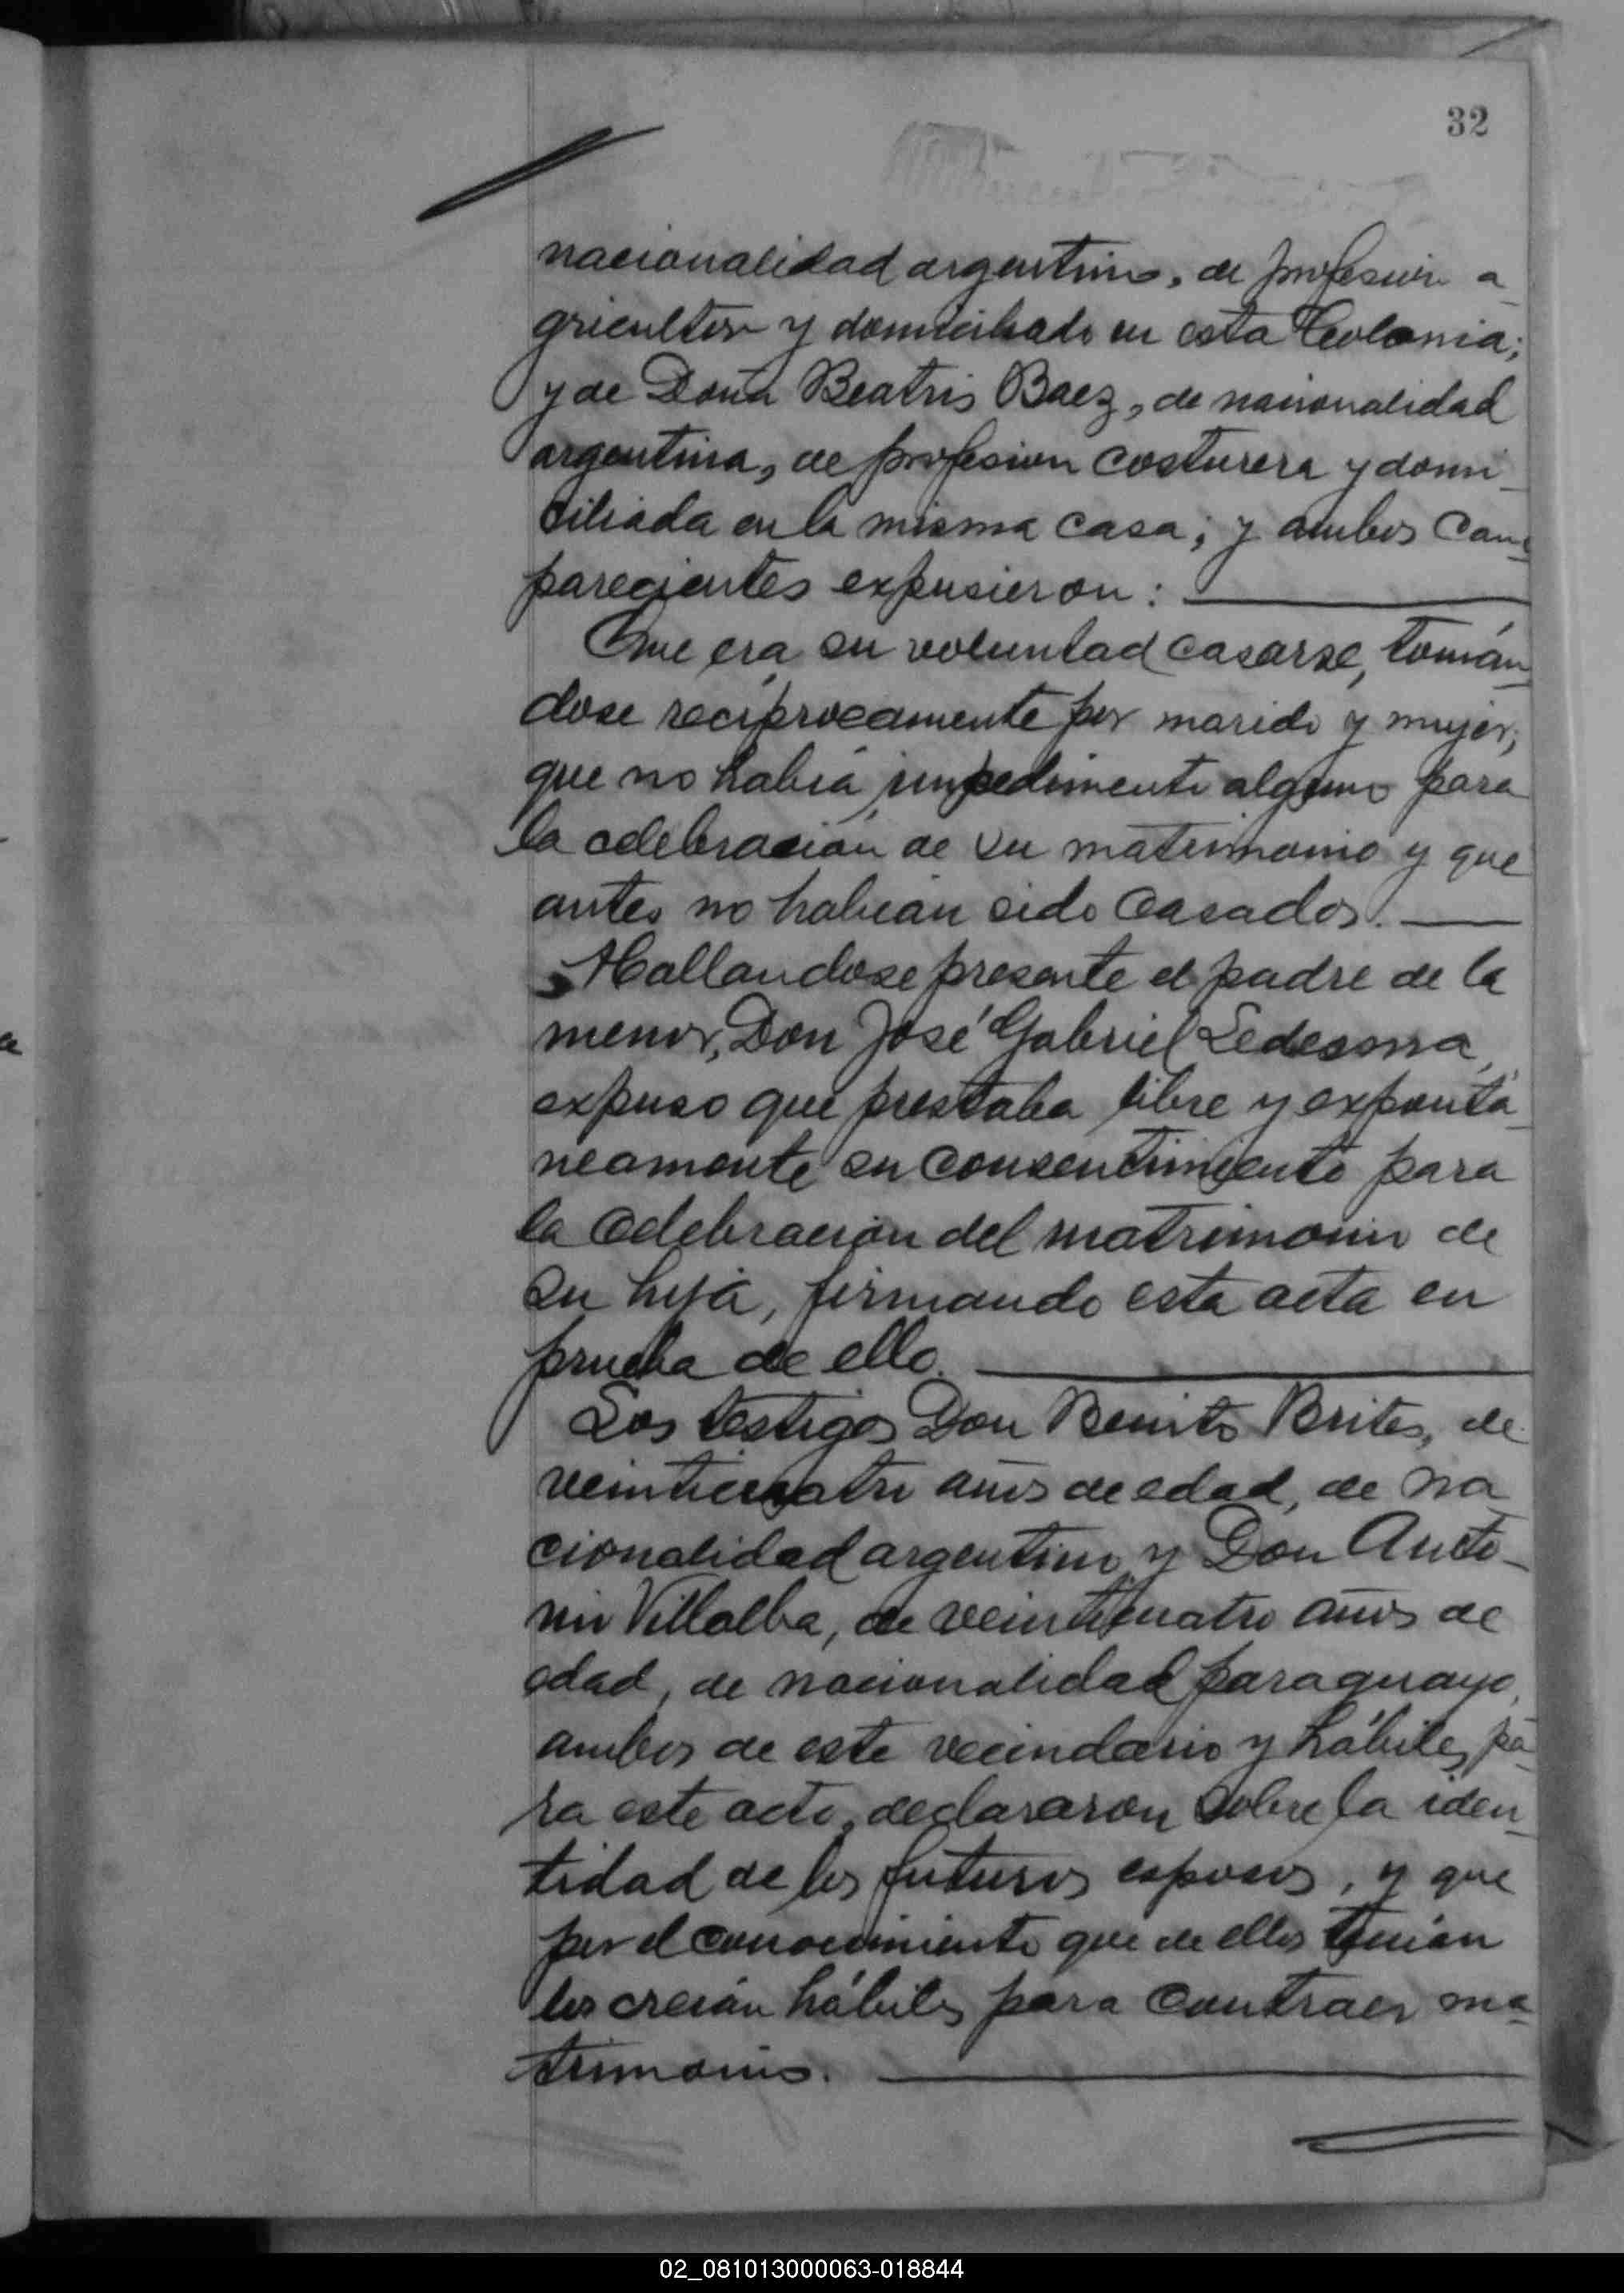 32
nacionalidad argentino, de profesion a
gricultor y domiciliado en esta Colonia;
y de Doña Beatris Baez, de nacionalidad
argentina, de profesion costurera y domi
ciliada en la misma casa; y ambos Com
parecientes expusieron:
Que era su voluntad casarse, tomán
dose recíprocamente por marido y mujer;
que no había impedimento alguno para
la celebración de su matrimonio y que
antes no habían sido casados.
Hallandose presente el padre de la
menor, Don José Gabriel Ledesma,
expuso que prestaba libre y expontá
neamente su consentimiento para
la celebración del matrimonio de
su hija, firmando esta acta en
prueba de ello.
Los testigos Don Benito Brites, de
veinticuatro años de edad, de na
cionalidad argentino y Don Anto-
nio Villalba, de veinticuatro años de
edad, de nacionalidad paraguayo,
ambos de este vecindario y hábiles pa
ra este acto, declararon sobre la iden
tidad de los futuros esposos, y que
por el conocimiento que de ellos tenían
los creían hábiles para contraer ma
trimonio.
02_081013000063-018844